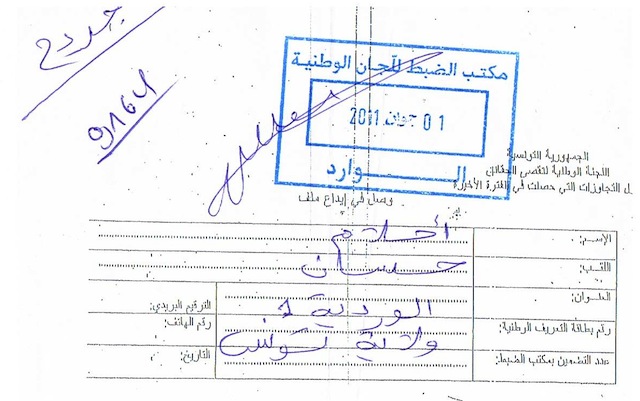 جديد
9164
مكتب الضبط للّجان الوطنية
01 جوان 2011
الـــــوارد
الجمهورية التونسية
اللجنة الوطنية لتقصي الحقائق
التجاوزات التي حصلت في الفترة الأخيرة
وصل في إيداع ملف
الإسم: أحلام
اللقب: حسان
العنوان: الوردية 1
الترقيم البريدي:
رقم بطاقة التعريف الوطنية: ولاية تونس
رقم الهاتف:
عدد التضمين بمكتب الضبط:
التاريخ: